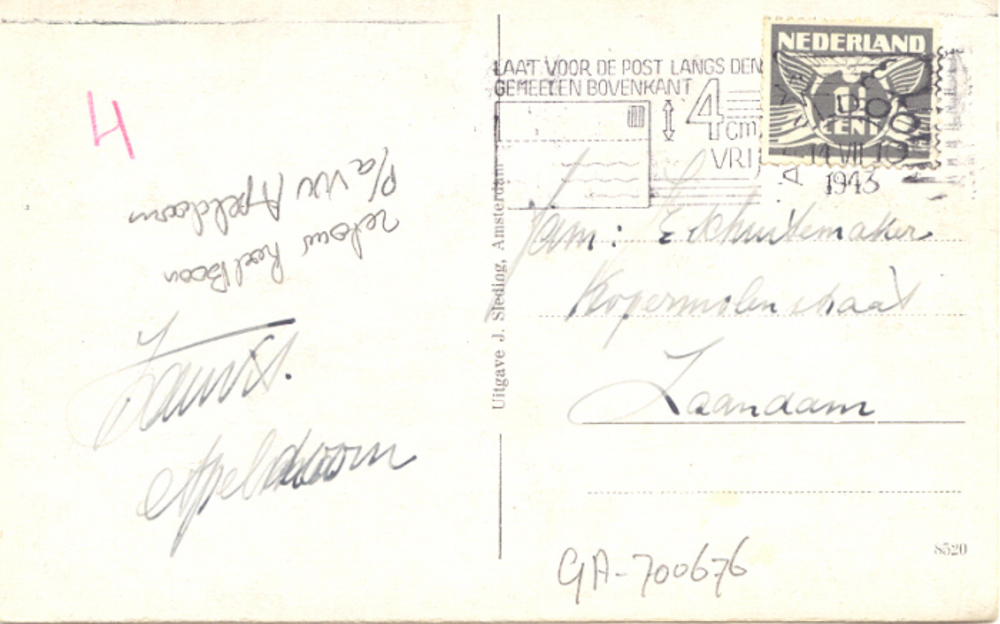 4
p/a VVV Apeldoorn
retour
Apeldoorn
Uitgave J. Sleding, Amsterdam
LAAT VOOR DE POST LANGS DEN
GEHEELEN BOVENKANT
4
cm
VRIJ
NEDERLAND
CENT
14 VII 10
1943
Fam: E Schuitemaker
Kopermolenstraat
Zaandam
8520
GA-700676